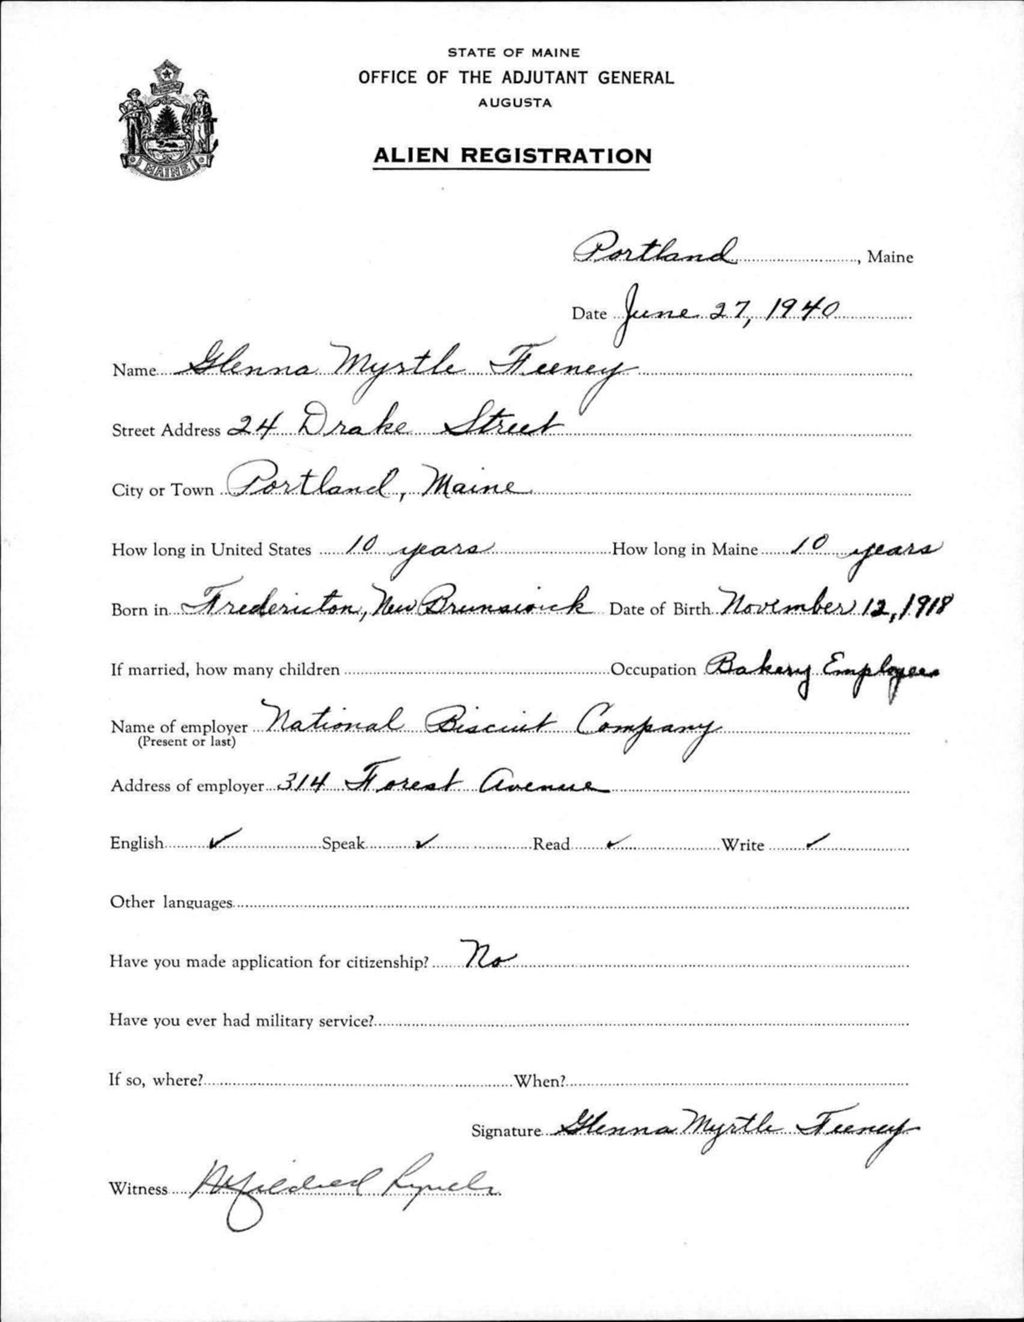 STATE OF MAINE
OFFICE OF THE ADJUTANT GENERAL
AUGUSTA
ALIEN REGISTRATION
MAINE
Portland, Maine
Date June 27, 1940
Name Glenna Myrtle Feeney
Street Address 24 Drake Street
City or Town Portland, Maine
How long in United States 10 years How long in Maine 10 years
Born in Fredericton, New Brunswick Date of Birth November 12, 1918
If married, how many children Occupation Bakery Employee
Name of employer National Biscuit Company
(Present or last)
Address of employer 314 Forest Avenue
English ✓ Speak ✓ Read ✓ Write ✓
Other languages
Have you made application for citizenship? No
Have you ever had military service?
If so, where? When?
Signature Glenna Myrtle Feeney
Witness Lynch